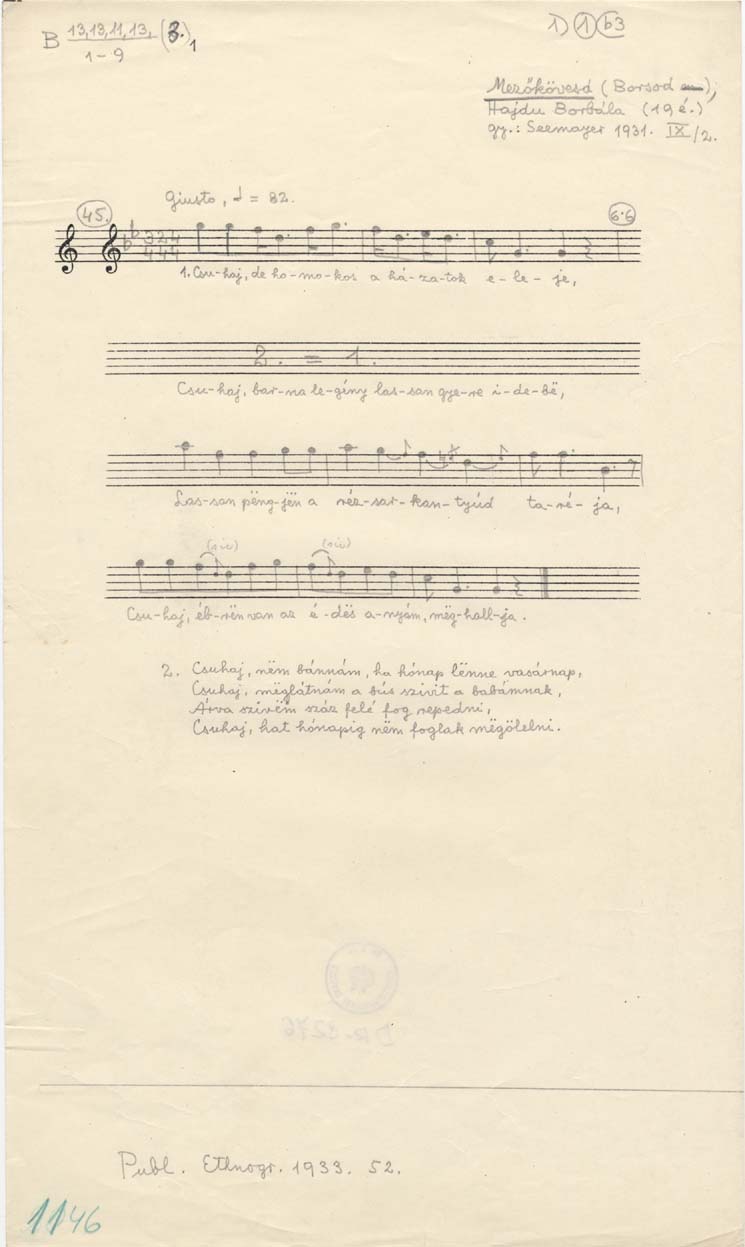 B 13,13,11,13, (3.)1
1-9
1) 1 b3
Mezőkövesd (Borsod),
Hajdu Borbála (19 é.)
gy.: Seemayer 1931. IX/2.
Giusto, = 82.
45.
6·6
3 2 4
4 4 4
1. Csu-haj, de ho-mo-kos a há-za-tok e-le-je,
2. = 1.
Csu-haj, bar-na le-gíny las-san gye-re i-de-bë,
Las-san pëng-jën a réz-sar-kan-tyúd ta-ré-ja,
(sic) (sic)
Csu-haj, éb-rën van az é-dës a-nyám, mëg-hall-ja.
2. Csuhaj, nëm bánnám, ha hónap lënne vasárnap,
Csuhaj, mëglátnám a bús szivit a babámnak,
Árva szivëm száz felé fog repedni,
Csuhaj, hat hónapig nëm foglak mëgölelni.
Publ. Ethnogr. 1933. 52.
1146